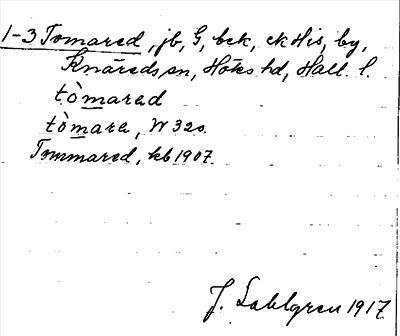 1-3 Tomared, jb, G, bek, ekHis, by,
Knäreds sn, Höks hd, Hall. l.
tòmared
tòmare, W 320.
Tommared, kb 1907.
J. Sahlgren 1917